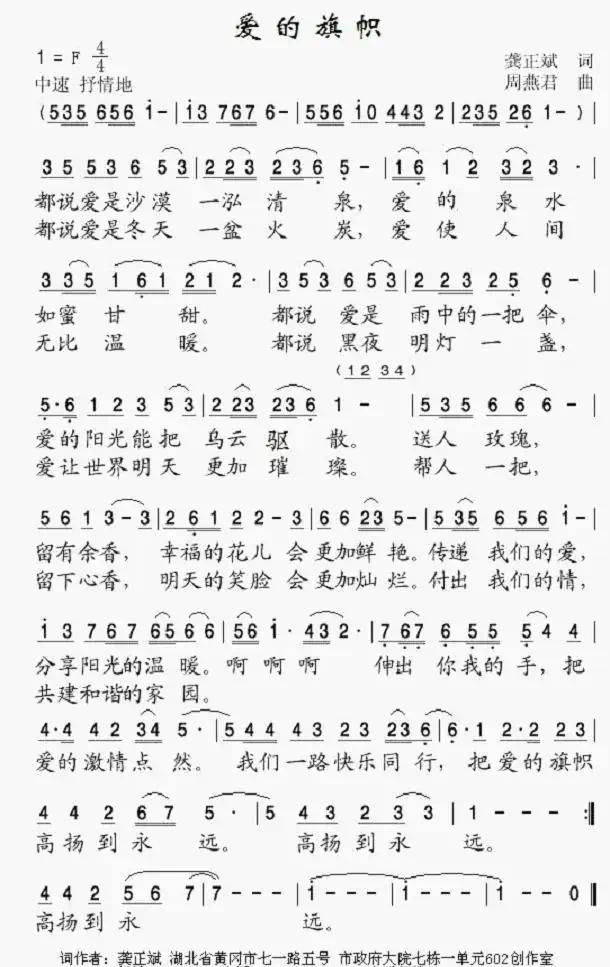 爱的旗帜
1=F 4/4 龚正斌 词
中速 抒情地 周燕君 曲
(535 656 1-|13 767 6-|556 10 443 2|235 26 1-)|
35 536 53|223 236 5-|16 12 32 3·|
都说爱是沙漠 一泓 清 泉, 爱 的 泉 水
都说爱是冬天 一盆 火 炭, 爱 使 人 间
335 161 21 2·|353 653|223 25 6-|
如蜜 甘 甜。 都说 爱是 雨中的一把 伞,
无比 温 暖。 都说 黑夜 明灯 一 盏,
(12 34)
5·6 123 53|2 23 236 1-|535 66 6-|
爱的阳光能把 乌云 驱 散。 送人 玫瑰,
爱让世界明天 更加 璀 璨。 帮人 一把,
561 3-3|261 22-3|66 23 5-|535 656 1-|
留有余香, 幸福的花儿 会 更加鲜 艳。传递 我们的爱,
留下心香, 明天的笑脸 会 更加灿 烂。付出 我们的情,
13 767 65 66|56 1· 43 2·|767 655 54 4|
分享阳光的温 暖。啊 啊 啊 伸出 你我的 手, 把
共建和谐的家 园。
4·4 42 34 5·|544 43 23 236|6·1 2·2 23|
爱的激情点 然。 我们一路快乐同 行, 把 爱的旗帜
442 67 5·|5 43 233|1---:‖
高扬到永 远。 高扬到永 远。
442 567|7---|1---|1---|1--0‖
高扬到永 远。
词作者: 龚正斌 湖北省黄冈市七一路五号 市政府大院七栋一单元602创作室